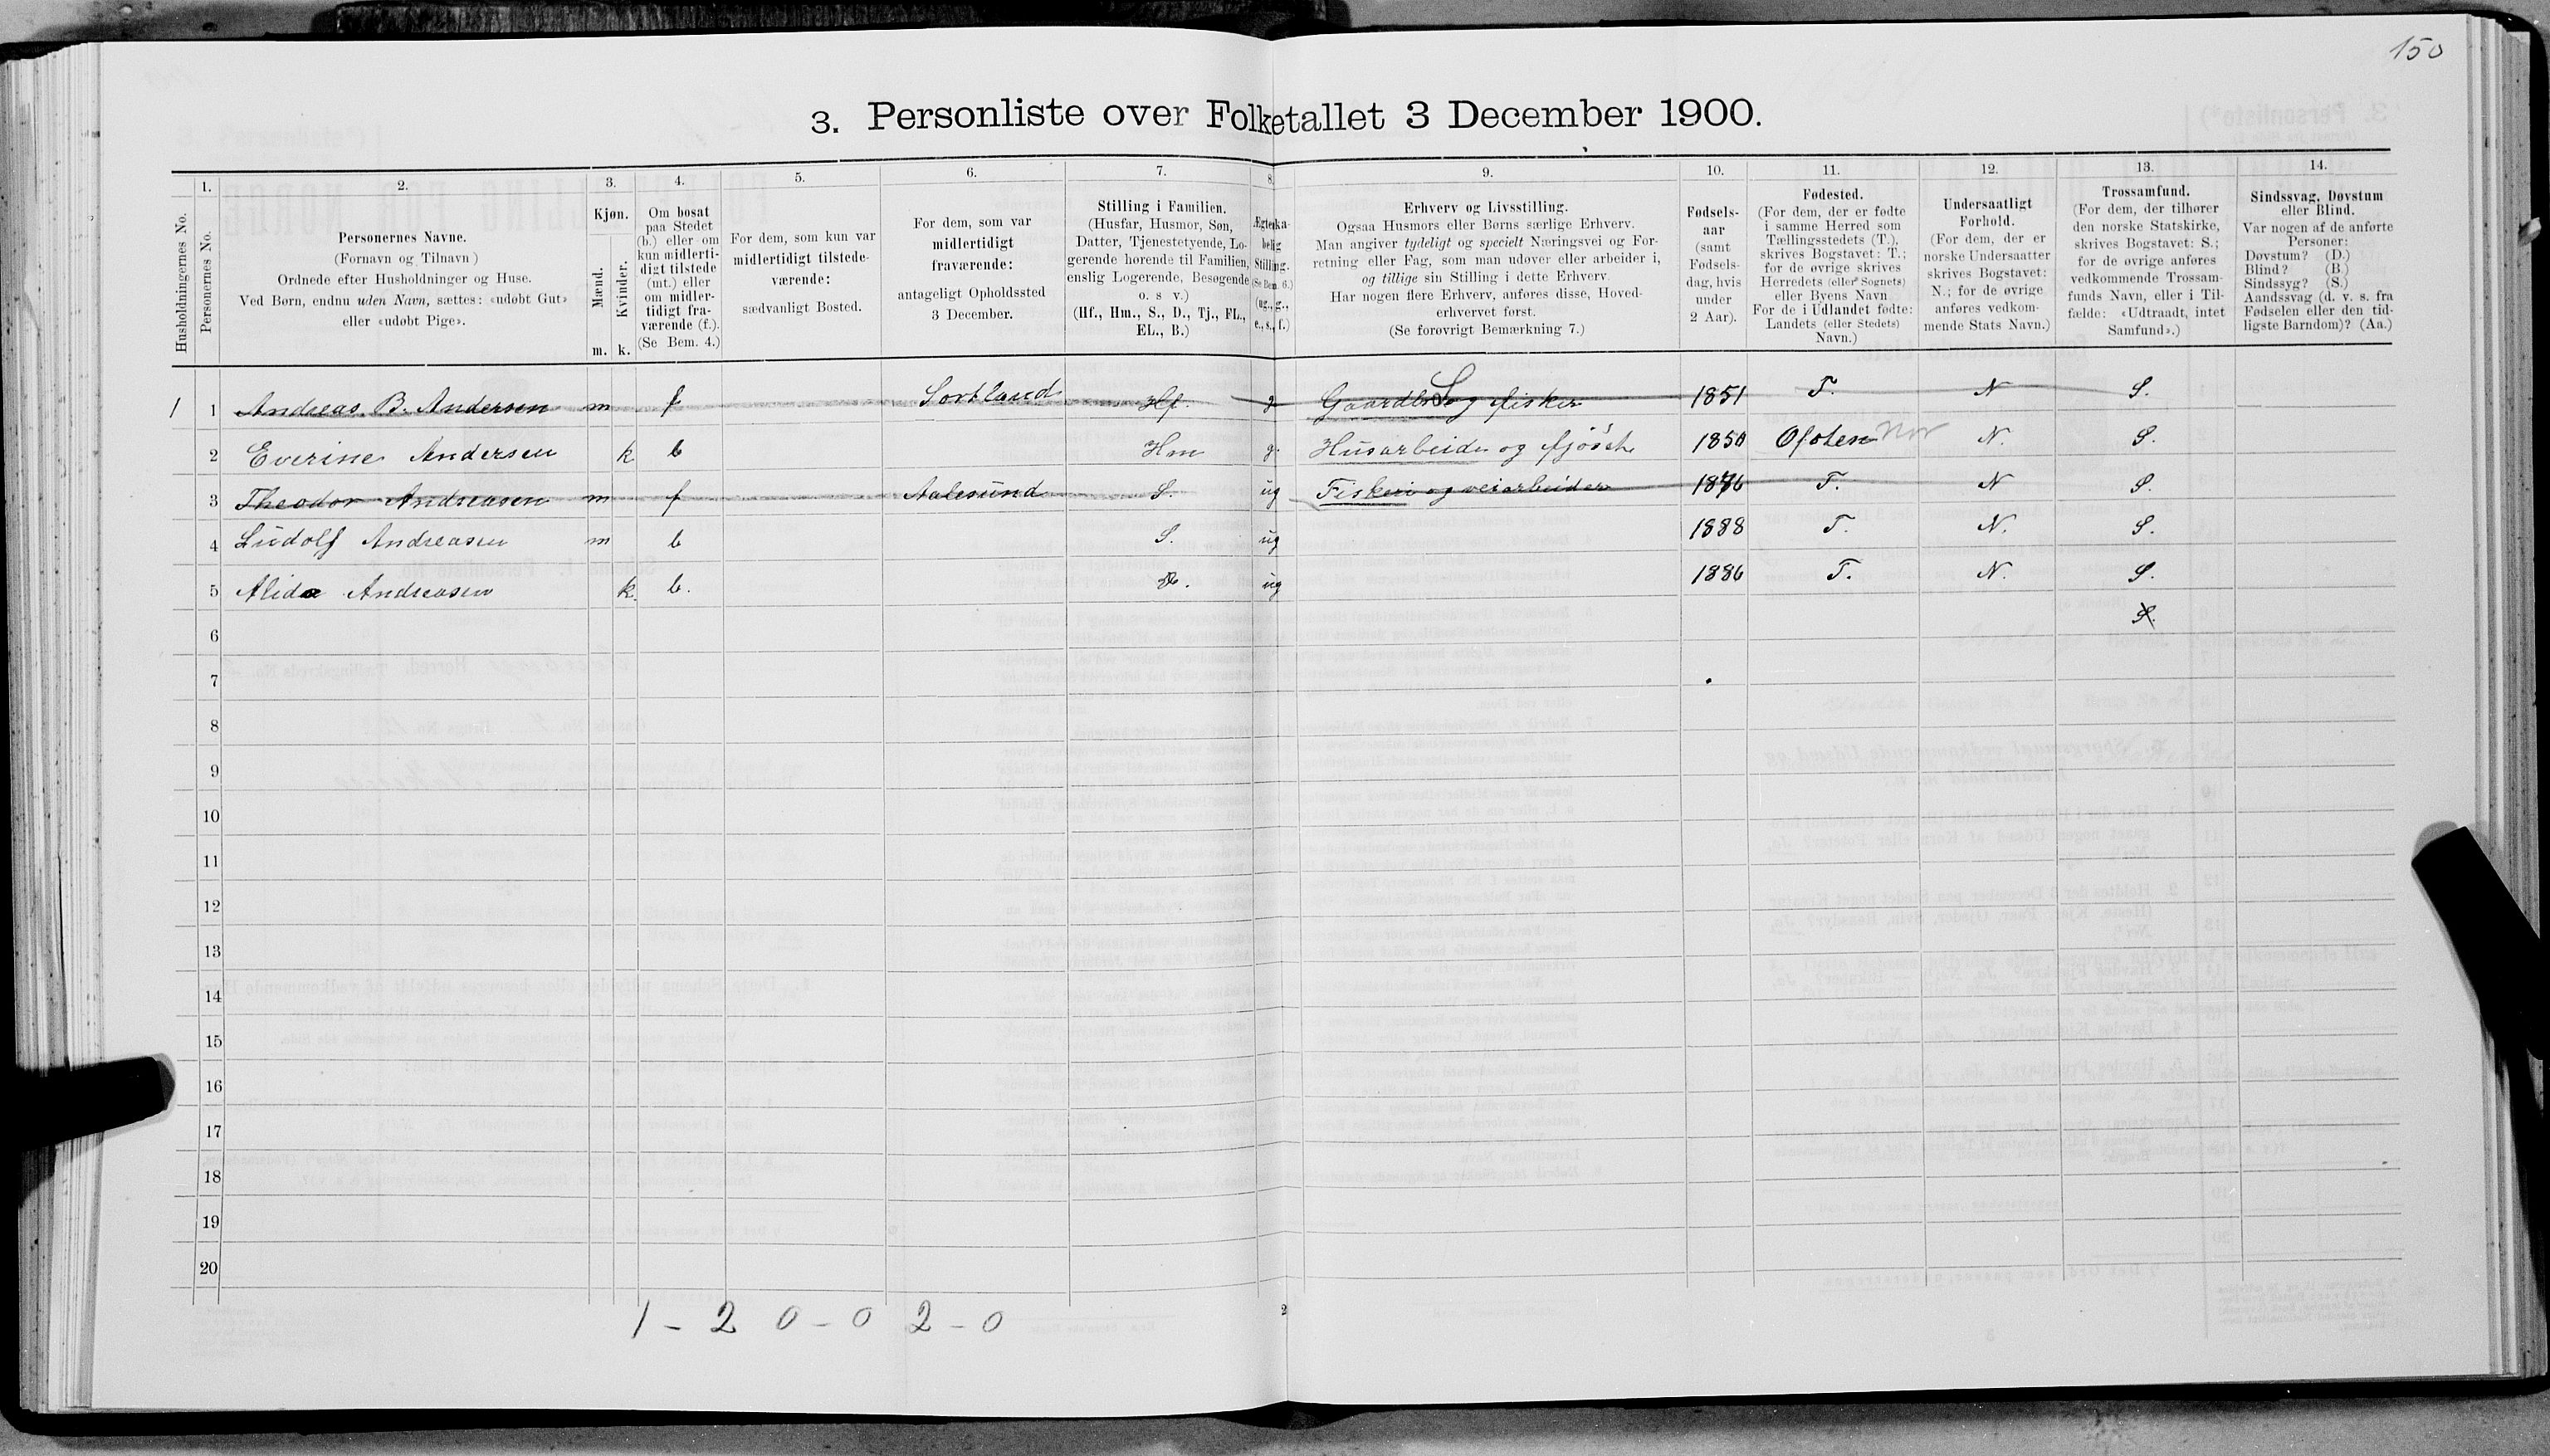 150
3. Personliste over Folketallet 3 December 1900.
Husholdningernes No.
1.
Personernes No.
2.
Personernes Navne.
(Fornavn og Tilnavn)
Ordnede efter Husholdninger og Huse.
Ved Børn, endnu uden Navn, sættes: «udøbt Gut»
eller «udøbt Pige».
3.
Kjøn.
Mænd.
Kvinder.
m. k.
4.
Om bosat
paa Stedet
(b.) eller om
kun midlerti-
digt tilstede
(mt.) eller
om midler-
tidigt fra-
værende (f.).
(Se Bem. 4.)
5.
For dem, som kun var
midlertidigt tilstede-
værende:
sædvanligt Bosted.
6.
For dem, som var
midlertidigt
fraværende:
antageligt Opholdssted
3 December.
7.
Stilling i Familien.
(Husfar, Husmor, Søn,
Datter, Tjenestetyende, Lo-
gerende hørende til Familien,
enslig Logerende, Besøgende
o. s v.)
(Hf., Hm., S., D., Tj., FL.,
EL., B.)
8.
Ægteska-
belig
Stilling.
(Se Bem. 6.)
(ug., g.,
e., s., f.)
9.
Erhverv og Livsstilling.
Ogsaa Husmors eller Børns særlige Erhverv.
Man angiver tydeligt og specielt Næringsvei og For-
retning eller Fag, som man udøver eller arbeider i,
og tillige sin Stilling i dette Erhverv.
Har nogen flere Erhverv, anføres disse, Hoved-
erhvervet først.
(Se forøvrigt Bemærkning 7.)
10.
Fødsels-
aar
(samt
Fødsels-
dag, hvis
under
2 Aar).
11.
Fødested.
(For dem, der er fødte
i samme Herred som
Tællingsstedets (T.),
skrives Bogstavet: T.;
for de øvrige skrives
Herredets (eller Sognets)
eller Byens Navn
For de i Udlandet fødte:
Landets (eller Stedets)
Navn.)
12.
Undersaatligt
Forhold.
(For dem, der er
norske Undersaatter
skrives Bogstavet:
N.; for de øvrige
anføres vedkom-
mende Stats Navn.)
13.
Trossamfund.
(For dem, der tilhører
den norske Statskirke,
skrives Bogstavet: S.;
for de øvrige anføres
vedkommende Trossam-
funds Navn, eller i Til-
fælde: «Udtraadt, intet
Samfund».)
14.
Sindssvag, Døvstum
eller Blind.
Var nogen af de anførte
Personer:
Døvstum? (D.)
Blind? (B.)
Sindssyg? (S.)
Aandssvag (d. v. s. fra
Fødselen eller den tid-
ligste Barndom)? (Aa.)
1 1 Andreas B. Andersen m f Sortland Hf. g Gaardbr S og fisker 1851 T. N S.
2 Everine Andersen k b Hm g. Husarbeide og fjøsst. 1850 Ofoten N. S.
3 Theodor Andreasen m f Aalesund S. ug Fiskeri og veiarbeider 1876 T. N S.
4 Ludolf Andreasen m b S. ug 1888 T. N. S.
5 Alida Andreasen k. b. D. ug 1886 T. N. S.
6 S.
7
8
9
10
11
12
13
14
15
16
17
18
19
20
1 - 2 0 - 0 2 - 0
2